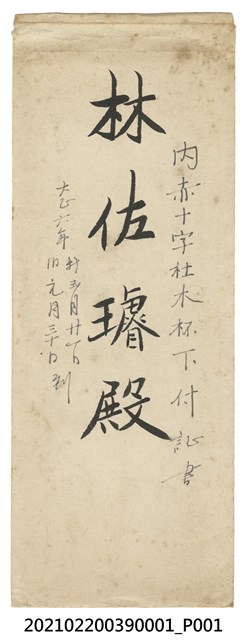 內赤十字社木杯下付証書
林佐璿殿
大正六年 新五月廿一日
旧元月三十日到
202102200390001_P001